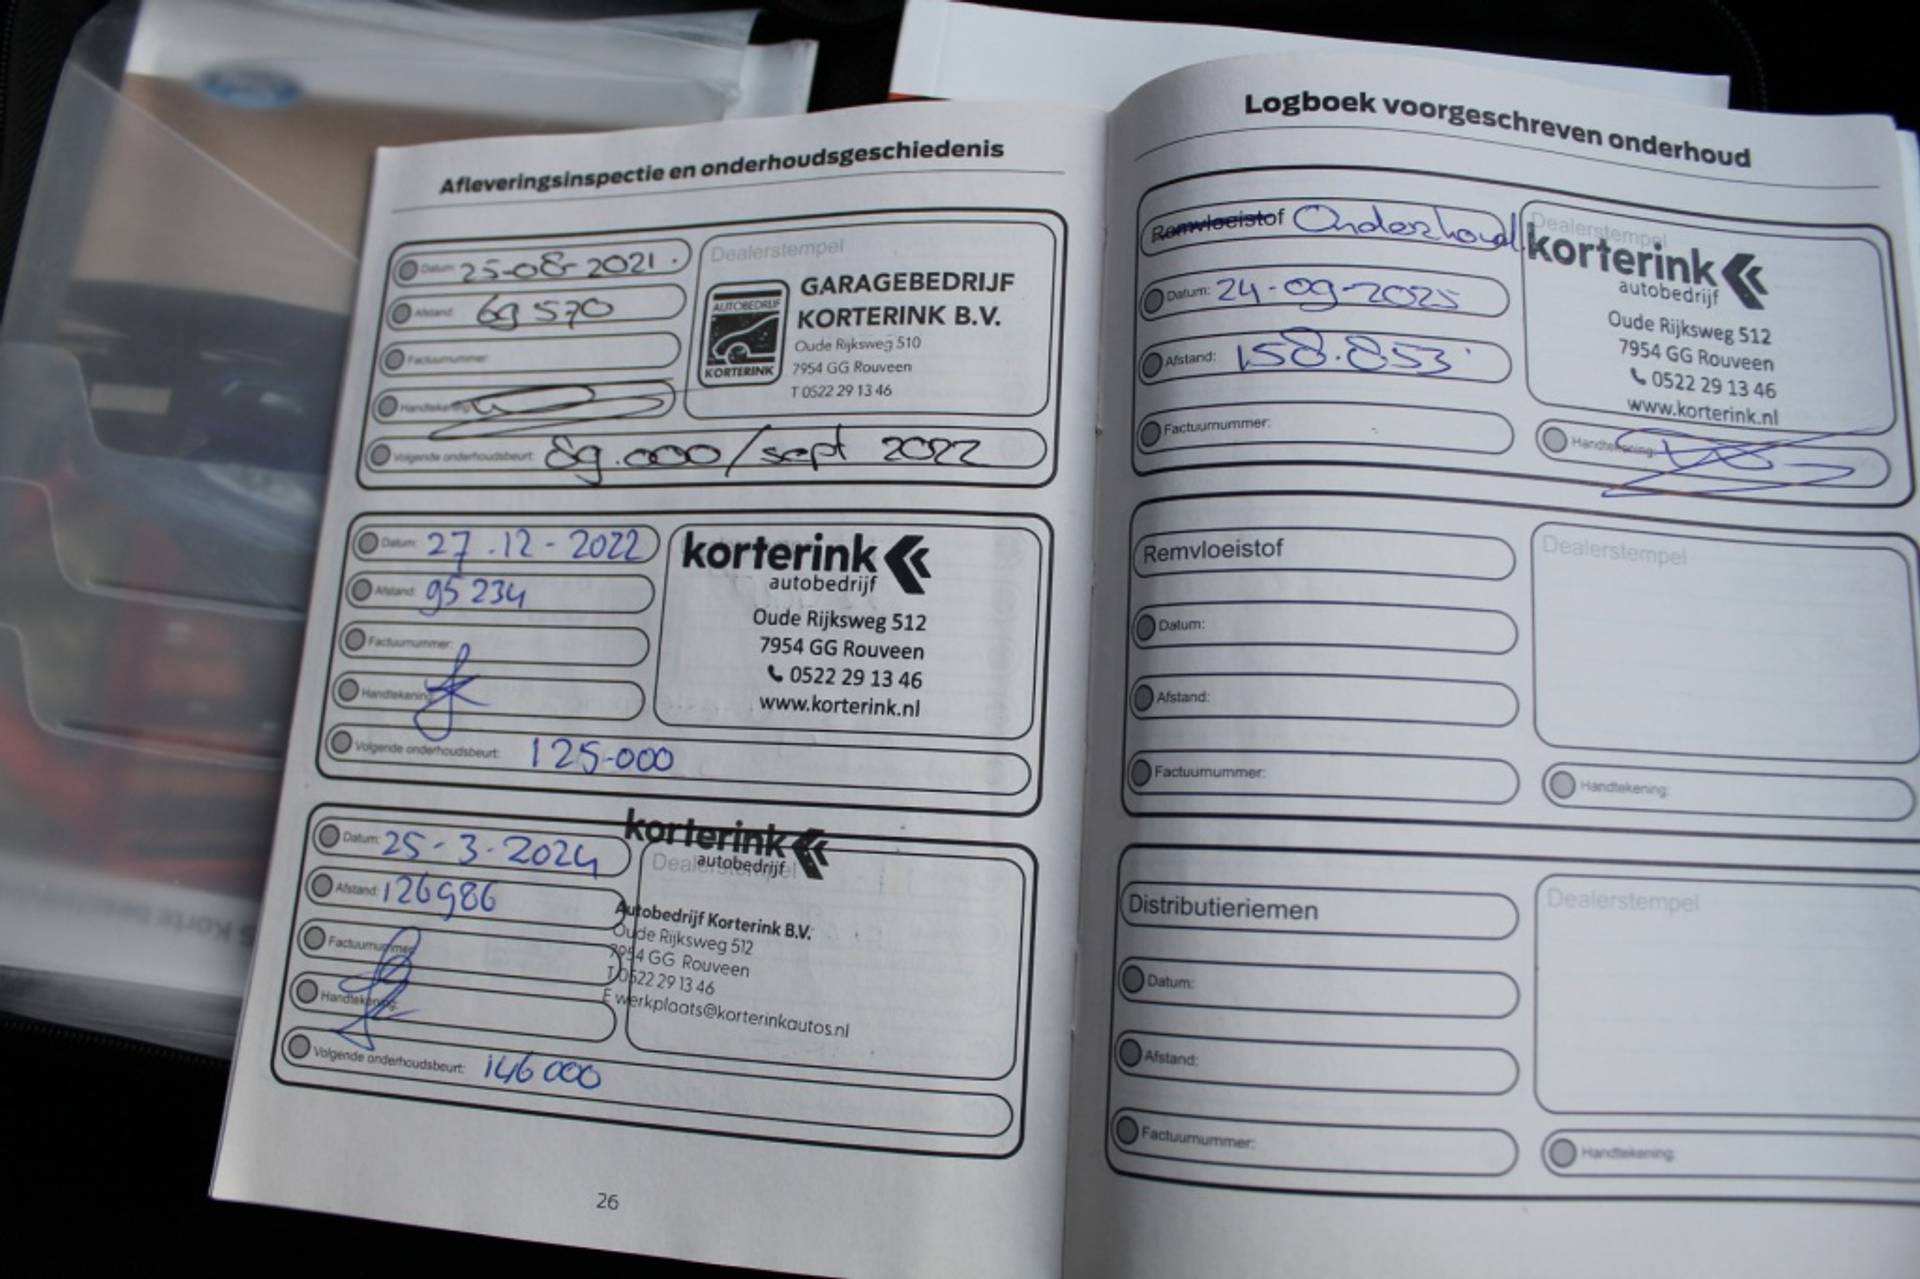 Afleveringsinspectie en onderhoudsgeschiedenis
Datum: 25-08-2021.
Afstand: 69570
Factuurnummer:
Handtekening:
Volgende onderhoudsbeurt: 89.000/sept 2022
Dealerstempel
AUTOBEDRIJF
KORTERINK
GARAGEBEDRIJF
KORTERINK B.V.
Oude Rijksweg 510
7954 GG Rouveen
T 0522 29 13 46
Datum: 27.12-2022
Afstand: 95234
Factuurnummer:
Handtekening:
Volgende onderhoudsbeurt: 125-000
korterink
autobedrijf
Oude Rijksweg 512
7954 GG Rouveen
0522 29 13 46
www.korterink.nl
Datum: 25-3-2024
Afstand: 126986
Factuurnummer:
Handtekening:
Volgende onderhoudsbeurt: 146000
korterink
Dealerstempel
autobedrijf
Autobedrijf Korterink B.V.
Oude Rijksweg 512
7954 GG Rouveen
T 0522 29 13 46
E werkplaats@korterinkautos.nl
26
Logboek voorgeschreven onderhoud
Remvloeistof Onderhoud
Datum: 24-09-2025
Afstand: 158.853
Factuurnummer:
Dealerstempel
korterink
autobedrijf
Oude Rijksweg 512
7954 GG Rouveen
0522 29 13 46
www.korterink.nl
Handtekening:
Remvloeistof
Datum:
Afstand:
Factuurnummer:
Dealerstempel
Handtekening:
Distributieriemen
Datum:
Afstand:
Factuurnummer:
Dealerstempel
Handtekening: